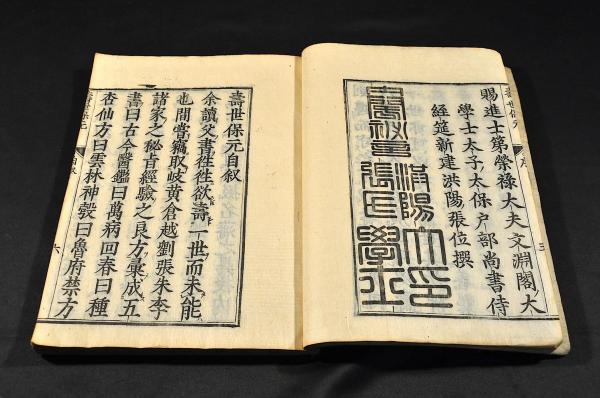 壽世保元
序
三
賜進士第榮祿大夫文淵閣大
學士太子太保户部尚書侍
經筵新建洪陽張位撰
壽世保元自叙
余讀父書徃徃欲壽一世而未能
也間嘗竊取岐黄倉越劉張朱李
諸家之秘旨經驗之良方彙成五
書曰古今醫鑑曰萬病回春曰種
杏仙方曰雲林神彀曰魯府禁方
自叙
六